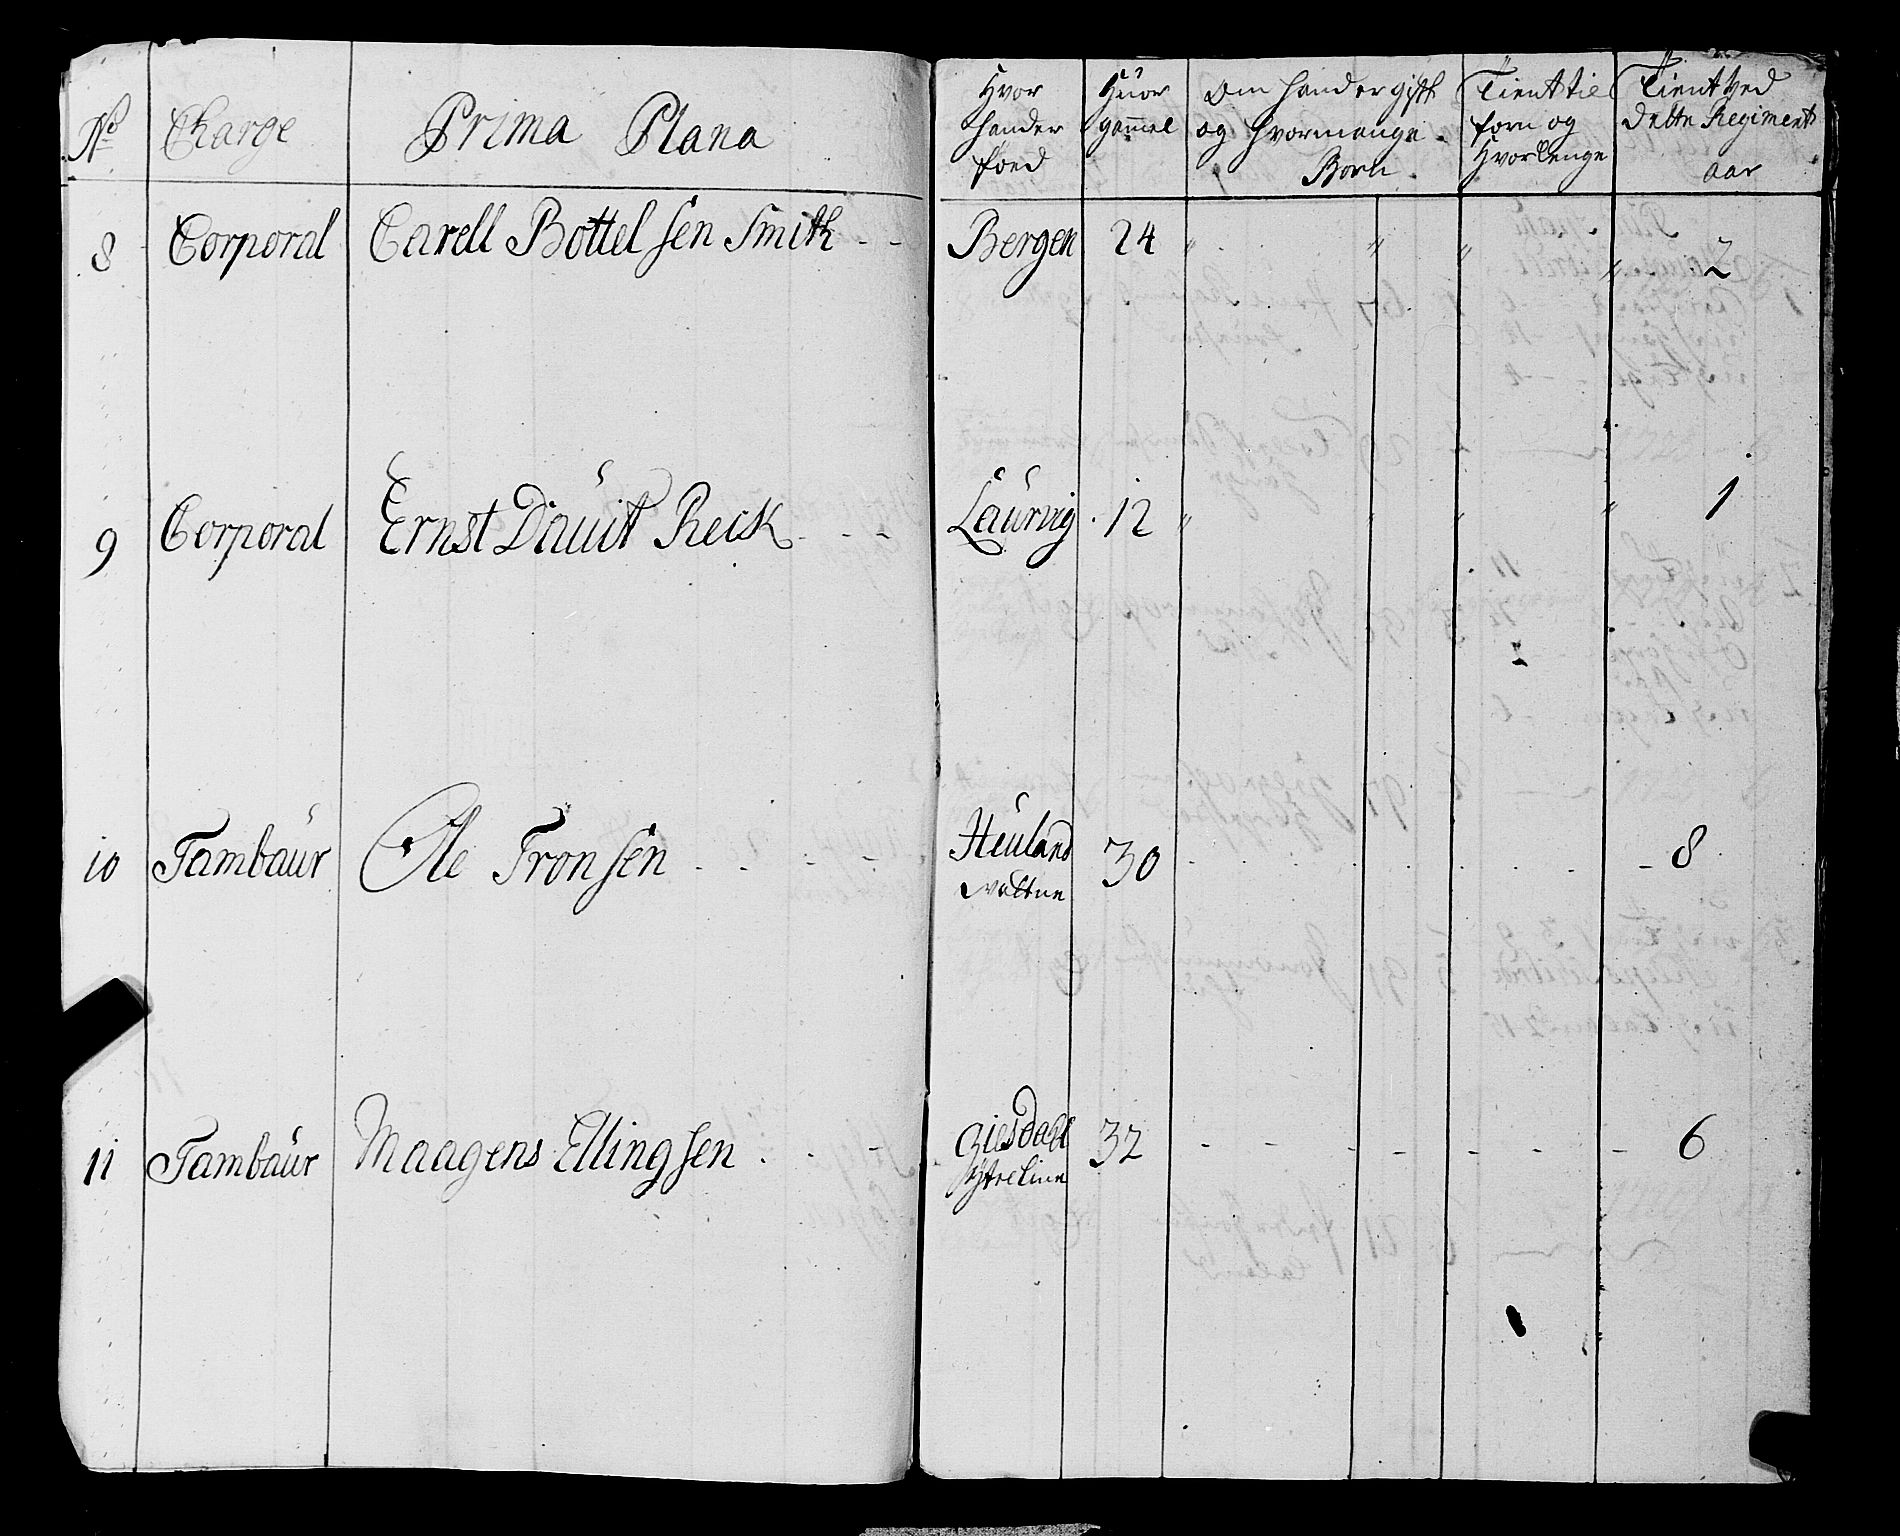 No Charge Prima Plana
Hvor hand er föed
Huor gammel
Om hand er gift og Hvormange Born
Tient til forn og Hvorlenge
Tient Ved dette Regiment aar
8 Corporal Carell Bottelsen Smith - - Bergen 24 " " " " 2
9 Corporal Ernst Dauit Reck - - - Laurvig 12 " " " " 1
10 Tambaur Ole Tronsen - - - - Heuland 30 - 8
wattne
11 Tambaur Maagens Ellingsen - - - Giesdall 32 - - - - - - - 6